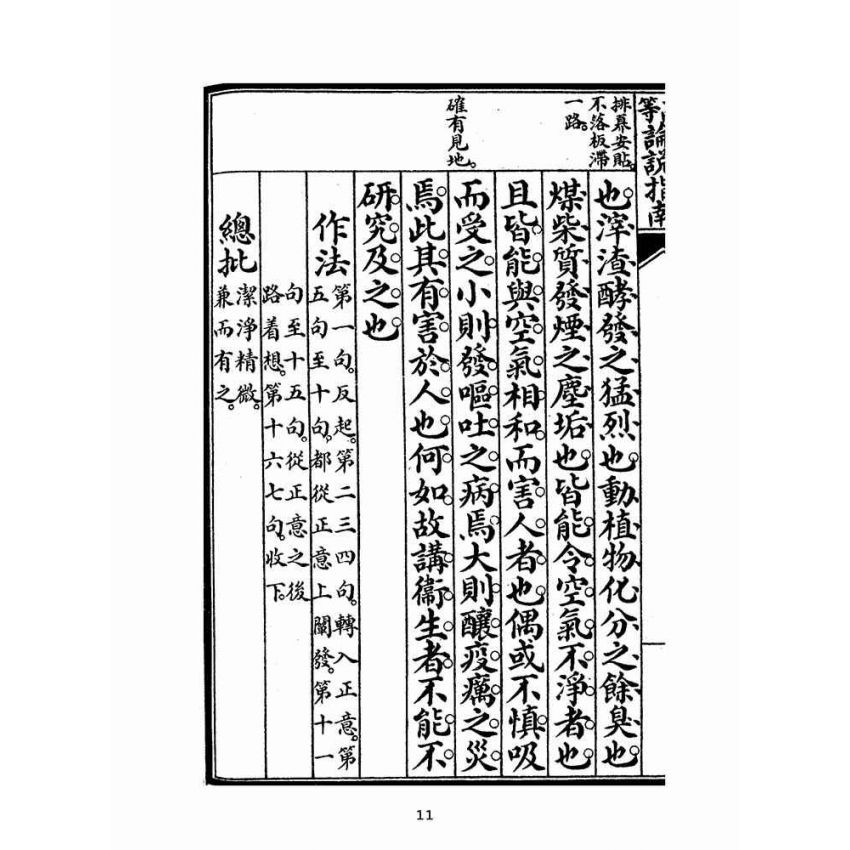 等論説指南
排募安貼。
不落板滯
一路。
確有見地。
也滓渣酵發之猛烈也動植物化分之餘臭也
煤柴質發煙之塵垢也皆能令空氣不淨者也
且皆能與空氣相和而害人者也偶或不慎吸
而受之小則發嘔吐之病焉大則釀疫癘之災
焉此其有害於人也何如故講衞生者不能不
研究及之也
作法
第一句。反起。第二三四句。轉入正意。第
五句至十句。都從正意上闡發。第十一
句至十五句。從正意之後
路着想。第十六七句。收下。
總批
潔淨精微。
兼而有之。
11